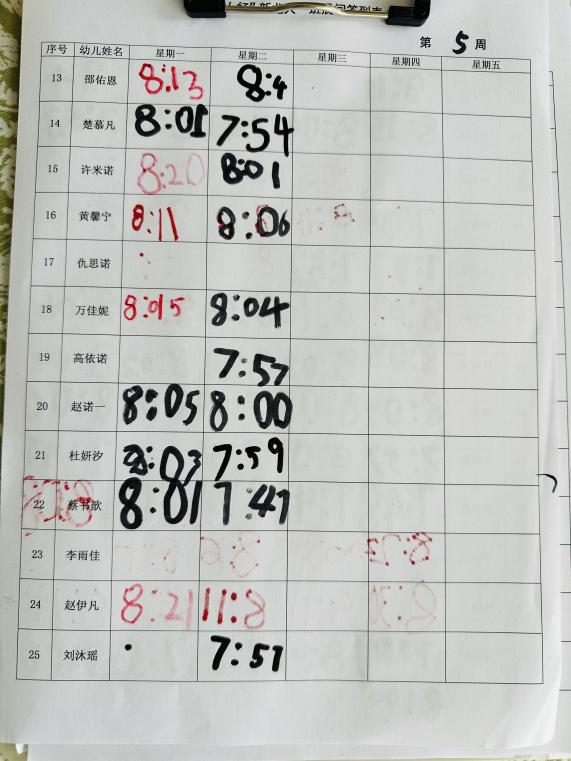 第 5 周
序号 幼儿姓名 星期一 星期二 星期三 星期四 星期五
13 邵佑恩 8:13 8:4
14 楚慕凡 8:01 7:54
15 许米诺 8:20 8:01
16 黄馨宁 8:11 8:06
17 仇思诺
18 万佳妮 8:015 8:04
19 高依诺 7:57
20 赵诺一 8:05 8:00
21 杜妍汐 8:03 7:59
22 蔡书歆 8:01 7:47
23 李雨佳
24 赵伊凡 8:21 11:8
25 刘沐瑶 7:57